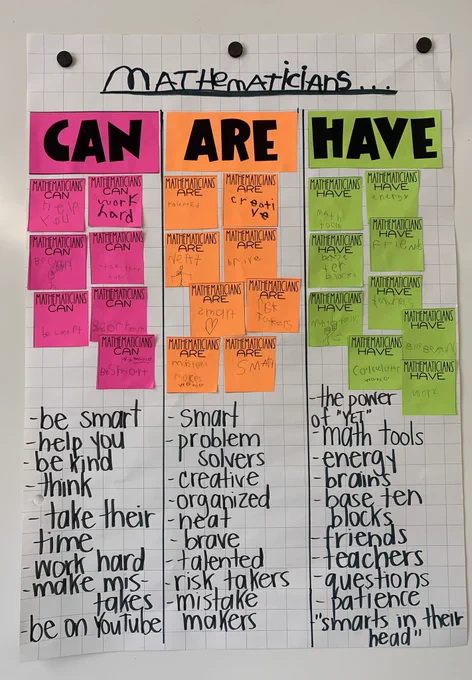 MATHEMATICIANS...
CAN
ARE
HAVE
MATHEMATICIANS
CAN
help
you
MATHEMATICIANS
CAN
work
hard
MATHEMATICIANS
CAN
MATHEMATICIANS
CAN
MATHEMATICIANS
CAN
MATHEMATICIANS
CAN
MATHEMATICIANS
CAN
Be Smart
MATHEMATICIANS
ARE
talented
MATHEMATICIANS
ARE
creati
ve
MATHEMATICIANS
ARE
neat
MATHEMATICIANS
ARE
brave
MATHEMATICIANS
ARE
smart
MATHEMATICIANS
ARE
MATHEMATICIANS
ARE
MATHEMATICIANS
ARE
MATHEMATICIANS
HAVE
math
tools
MATHEMATICIANS
HAVE
energy
MATHEMATICIANS
HAVE
MATHEMATICIANS
HAVE
MATHEMATICIANS
HAVE
MATHEMATICIANS
HAVE
MATHEMATICIANS
HAVE
MATHEMATICIANS
HAVE
MATHEMATICIANS
HAVE
-be smart
-help you
-be kind
-think
-take their
time
-work hard
-make mis-
takes
-be on YouTube
-smart
-problem
solvers
-creative
-organized
-neat
-brave
-talented
-risk takers
-mistake
makers
-the power
of "YET"
-math tools
-energy
-brains
-base ten
blocks
-friends
-teachers
-questions
-patience
-"smarts in their
head"